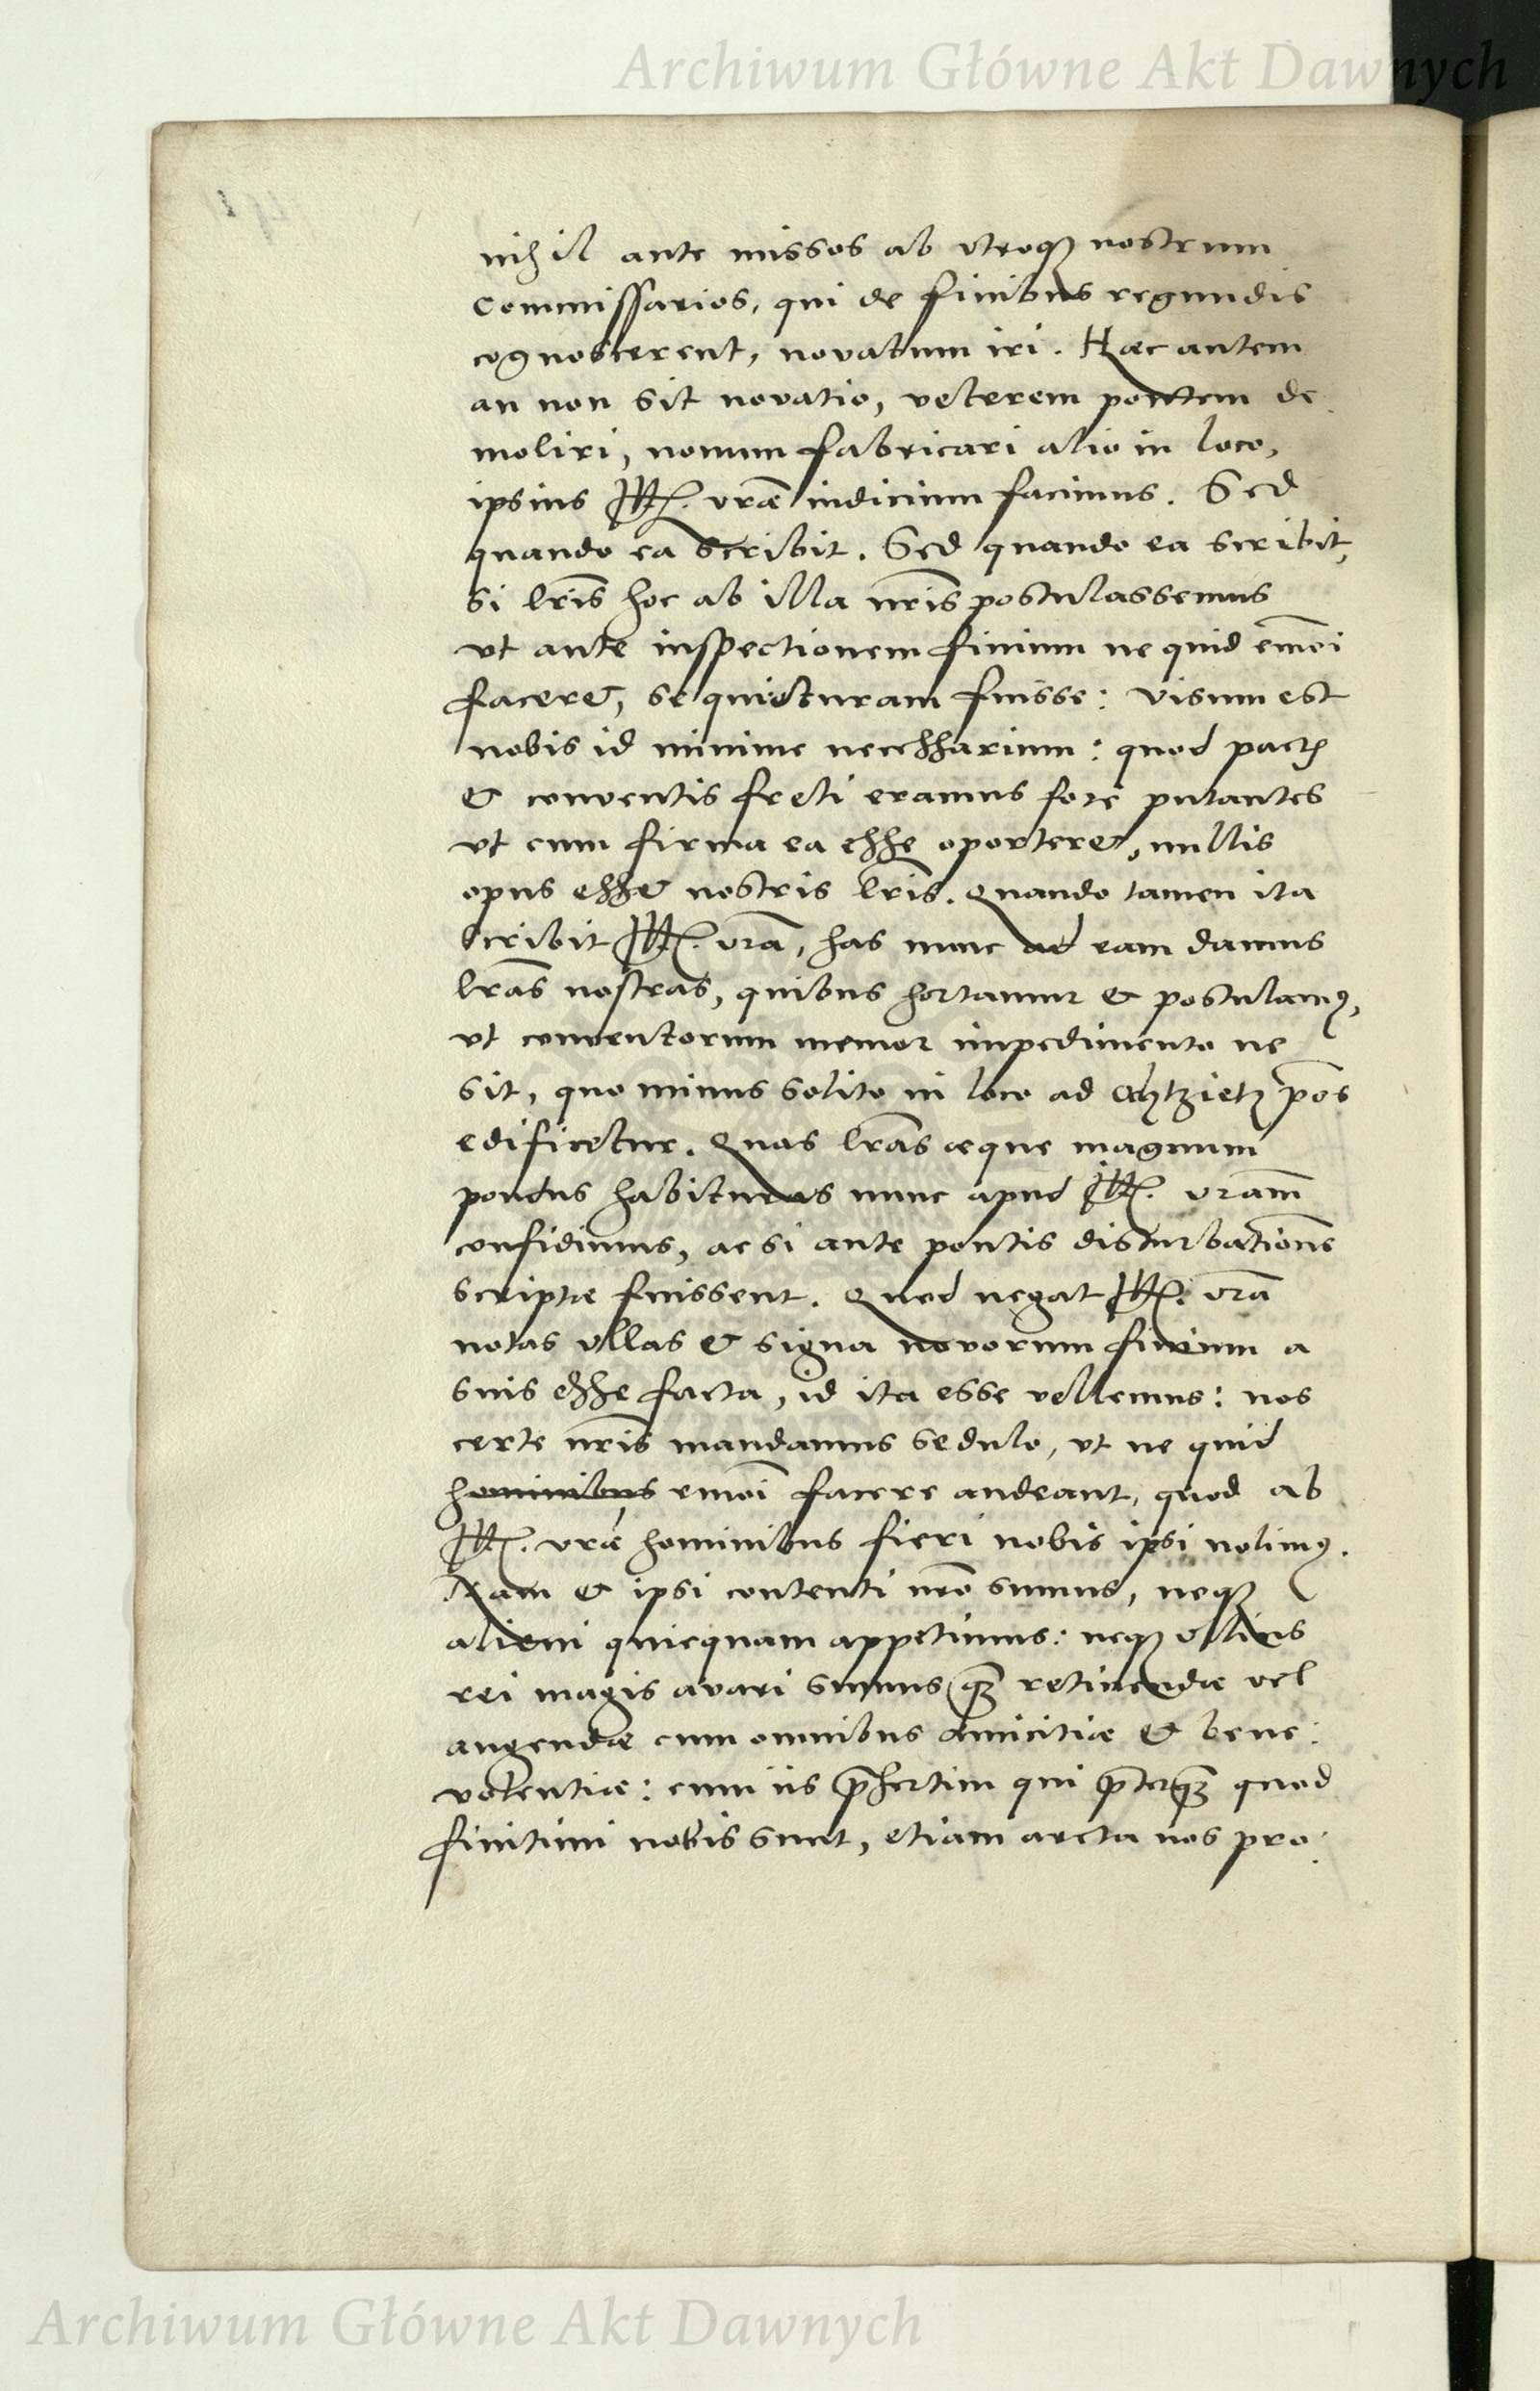 Archiwum Główne Akt Dawnych
nihil ante missos ab vtroqꝫ nostrum
Commissarios, qui de finibus regundis
cognoscerent, novatum iri. Haec autem
an non sit novatio, veterem pontem de
moliri, novum fabricari alio in loco,
ipsius Illt. vrae iudicium facimus. Sed
quando ea scribit. Sed quando ea scribit,
si lris hoc ab illa nris postulassemus
vt ante inspectionem finium ne quid emoi
faceret, se quieturam fuisse: visum est
nobis id minime necessarium: quod pactis
& conventis freti eramus fore putantes
vt cum firma ea esse oporteret, nullis
opus esset nostris lris. Quando tamen ita
scribit Illt. vra, has nunc ad eam damus
lras nostras, quibus hortamur & postulamꝰ,
vt conventorum memor impedimento ne
sit, quo minus solito in loco ad pons
edificetur. Quas lras aeque magnum
pondus habituras nunc apud Illt. vram
confidimus, ac si ante pontis disturbationē
scriptae fuissent. Quod negat Illt. vra
notas vllas & signa novorum finium a
suis esse facta, id ita esse vellemus: nos
certe nris mandamus sedulo, vt ne quid
hominibus emoi facere audeant, quod ab
Illt. vrae hominibus fieri nobis ipsi nolimꝰ.
Nam & ipsi contenti nro sumus, neqꝫ
alieni quicquam appetimus: neqꝫ vllius
rei magis avari sumus qꝫ retinendae vel
augendae cum omnibus amicitiae & bene:
volentiae: cum iis p̄sertim qui p̄terqꝫ quod
finitimi nobis sunt, etiam arcta nos pro:
Archiwum Główne Akt Dawnych